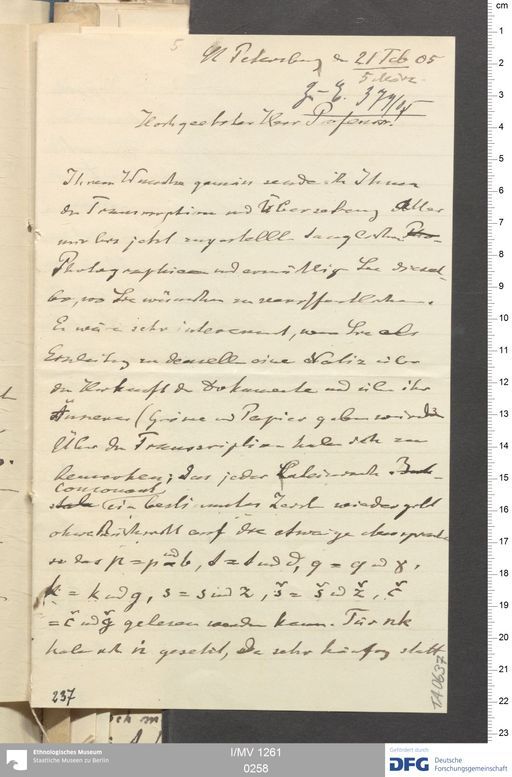 5
St Petersburg d 21 Feb 05
5 März.
J.-E. 379/05
Hochgeehrter Herr Professor!
Ihrem Wunsche gemäss sende ich Ihnen
die Transcription und Übersetzung aller
mir bis jetzt zugestellten
Photographieen und ermächtige Sie diesel-
be, wo Sie wünschen zu veröffentlichen.
Es wäre sehr interessant, wenn Sie als
Einleitung zu denselben eine Notiz über
die Herkunft der Dokumente und über ihr
Äusseres (Grösse und Papier) geben würden
Über die Transcription habe ich zu
bemerken, dass jeder Lateinische
Consonant
ein bestimmtes Zeichen wiedergibt
ohne Rücksicht auf die etwaige Aussprache
so dass p = p und b, t = t und d, q = q und γ,
k = k und g, s = s und z, š = š und ž, č
= č und ǧ gelesen werden kann. Für nk
habe ich gesetzt, da sehr häufig statt
237
IA0637
cm
1
2
3
4
5
6
7
8
9
10
11
12
13
14
15
16
17
18
19
20
21
22
23
Ethnologisches Museum
Staatliche Museen zu Berlin
I/MV 1261
0258
Gefördert durch
DFG Deutsche
Forschungsgemeinschaft